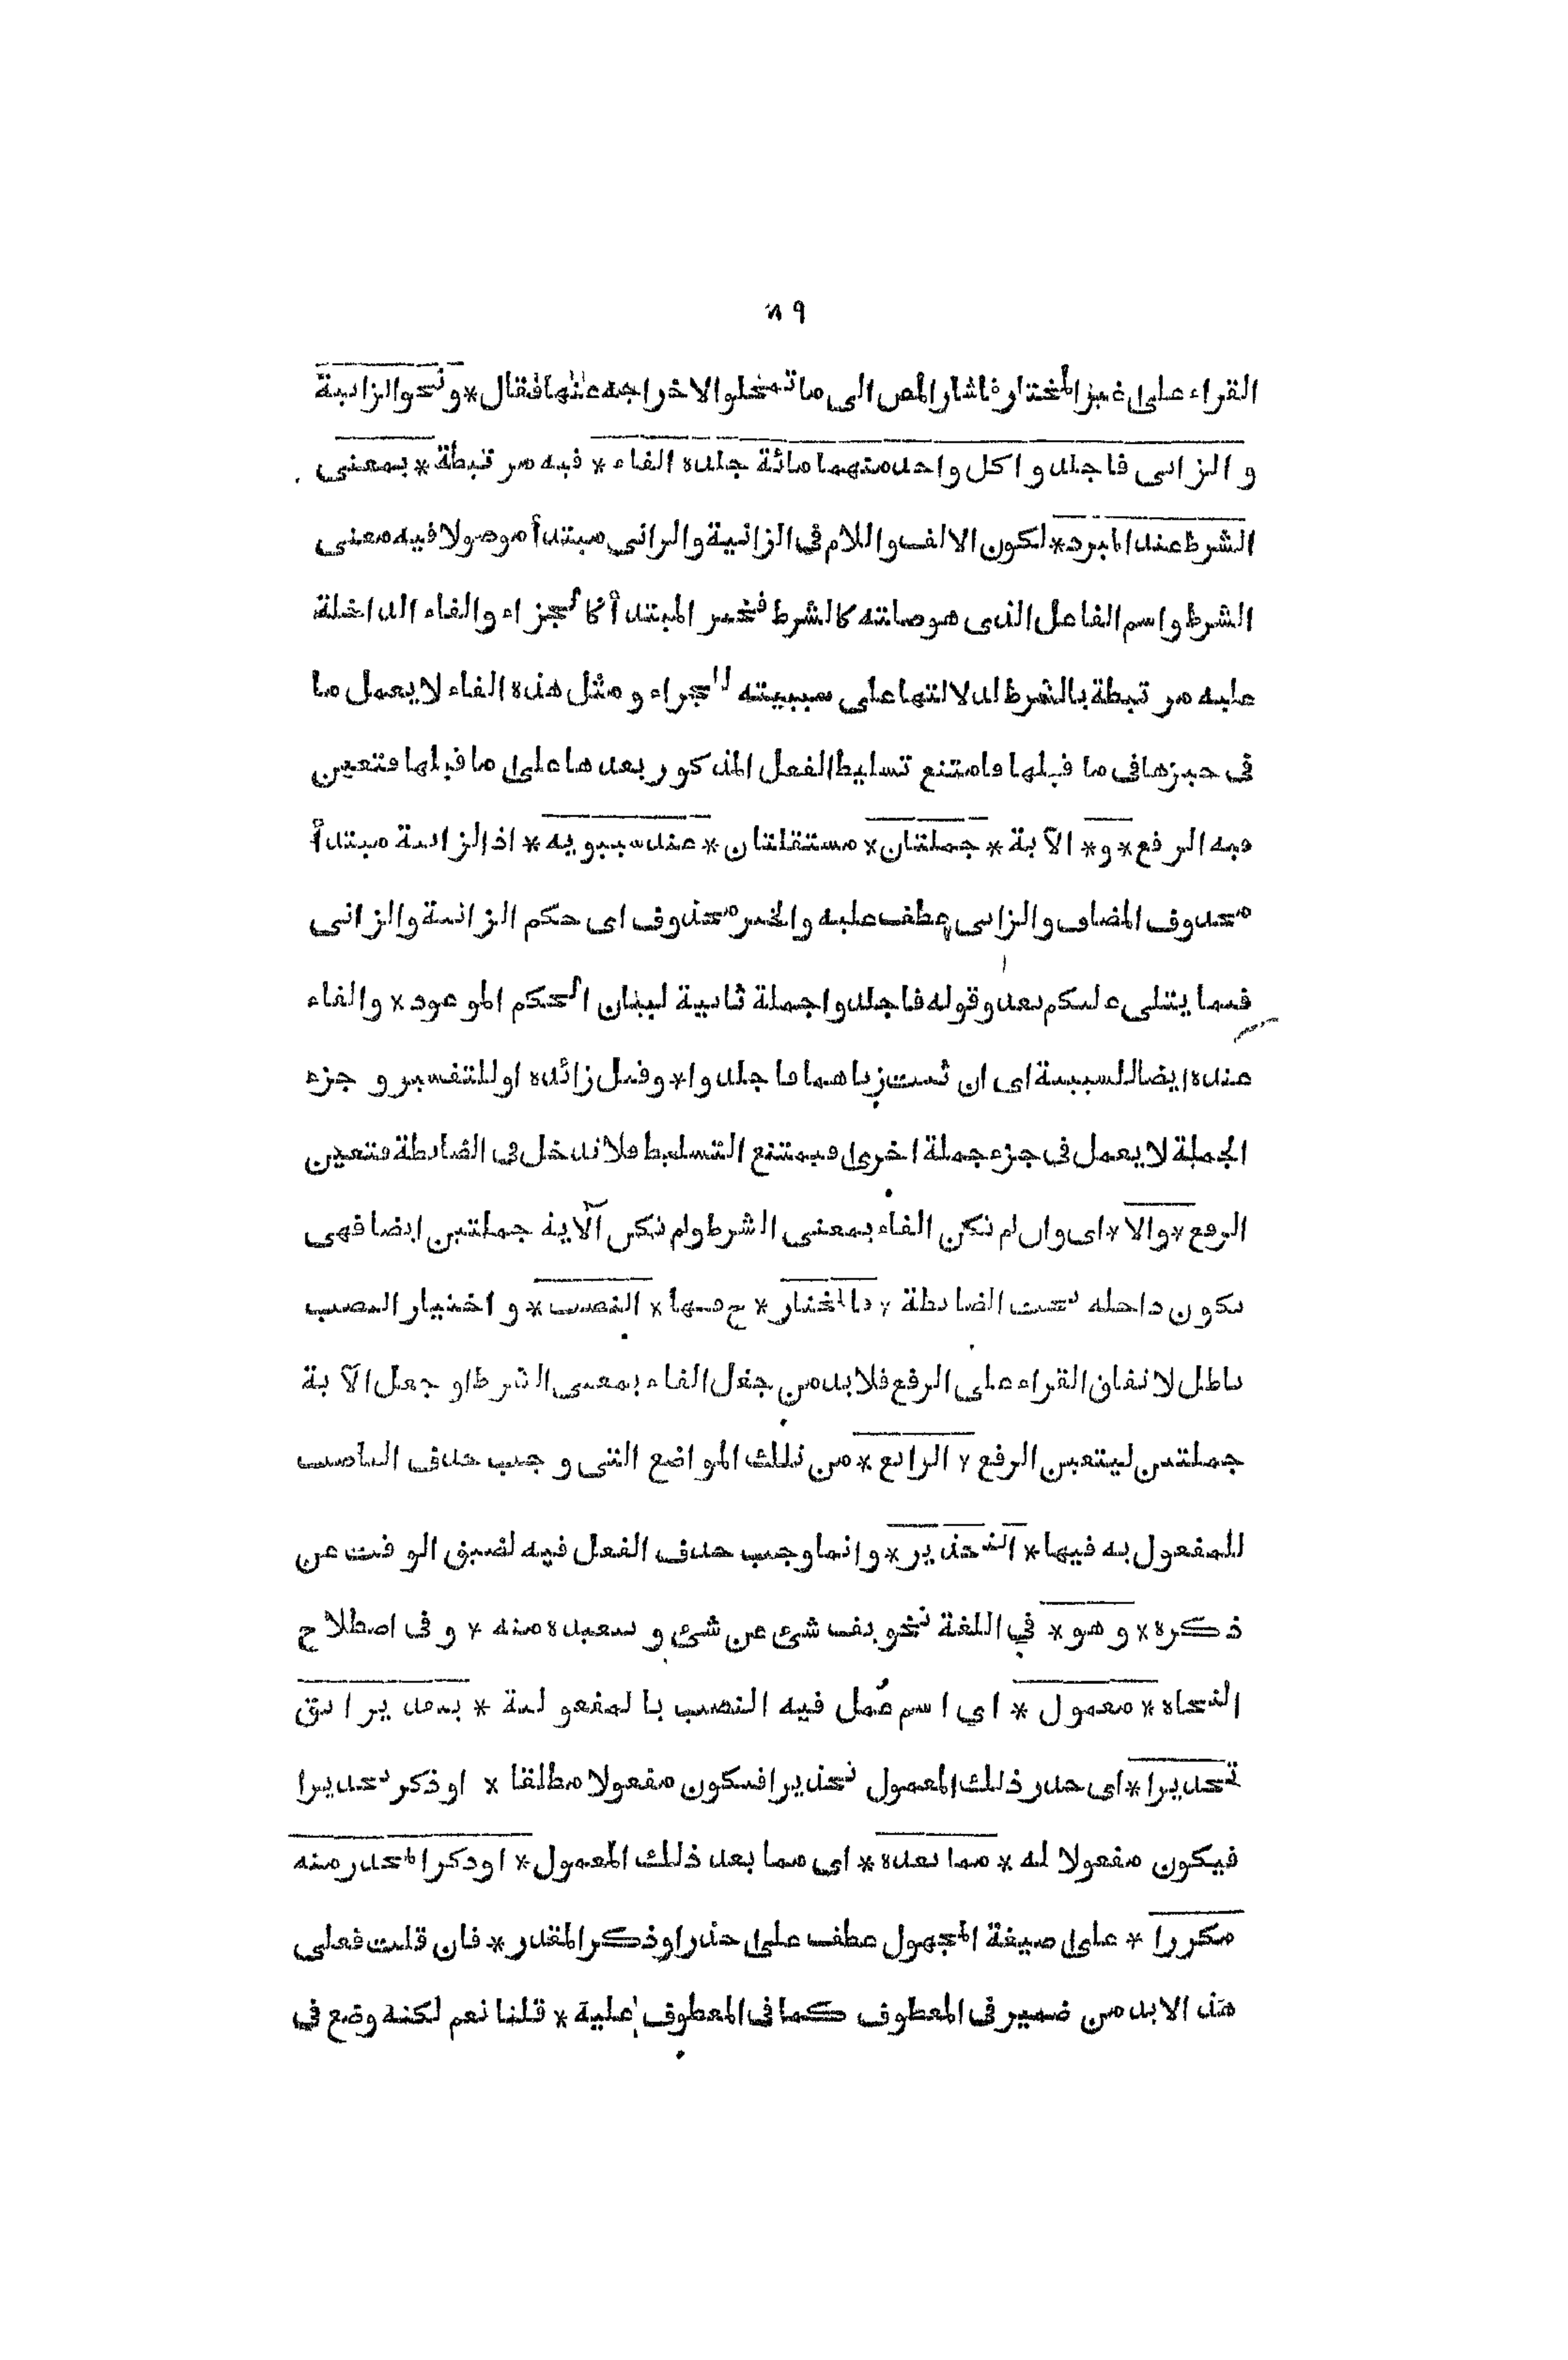 القراء على غير المختار فاشار المص الى ما تمحلوا لاخراجه عنها فقال * ونحو الزانية
والزانى فاجلدوا كل واحد منهما مائة جلدة الفاء * فيه مرتبطة * بمعنى
الشرط عند المبرد * لكون الالف واللام فى الزانية والزانى مبتدأ موصولا فيه معنى
الشرط واسم الفاعل الذى هو صلته كالشرط فخبر المبتدأ كالجزاء والفاء الداخلة
عليه مرتبطة بالشرط لدلالتها على سببيته للجزاء ومثل هذه الفاء لا يعمل ما
فى حيزها فى ما قبلها فامتنع تسليط الفعل المذكور بعدها على ما قبلها فتعين
فيه الرفع * و * الآية * جملتان * مستقلتان * عند سيبويه * اذ الزانية مبتدأ
محذوف المضاف والزانى عطف عليه والخبر محذوف اى حكم الزانية والزانى
فيما يتلى عليكم بعد وقوله فاجلدوا جملة ثانية لبيان الحكم الموعود * والفاء
عنده ايضا للسببية اى ان ثبت زناهما فاجلدوا * وقيل زائدة او للتفسير وجزء
الجملة لا يعمل فى جزء جملة اخرى فيمتنع التسليط فلا تدخل فى الضابطة فتعين
الرفع * والا * اى وان لم تكن الفاء بمعنى الشرط ولم تكن الآية جملتين ايضا فهى
تكون داخلة تحت الضابطة * فالمختار * ح فيها * النصب * واختيار النصب
باطل لاتفاق القراء على الرفع فلا بد من جعل الفاء بمعنى الشرط او جعل الآية
جملتين ليتعين الرفع * الرابع * من تلك المواضع التى وجب حذف الناصب
للمفعول به فيها * التحذير * وانما وجب حذف الفعل فيه لضيق الوقت عن
ذكره * وهو * في اللغة تخويف شئ عن شئ وتبعيده منه * وفى اصطلاح
النحاة * معمول * اي اسم عُمل فيه النصب بالمفعولية * بتقدير اتق
تحذيرا * اى حذر ذلك المعمول تحذيرا فيكون مفعولا مطلقا * او ذكر تحذيرا
فيكون مفعولا له * مما بعده * اى مما بعد ذلك المعمول * او ذكر المحذر منه
مكررا * على صيغة المجهول عطف على حذر او ذكر المقدر * فان قلت فعلى
هذا لابد من ضمير فى المعطوف كما فى المعطوف عليه * قلنا نعم لكنه وضع فى